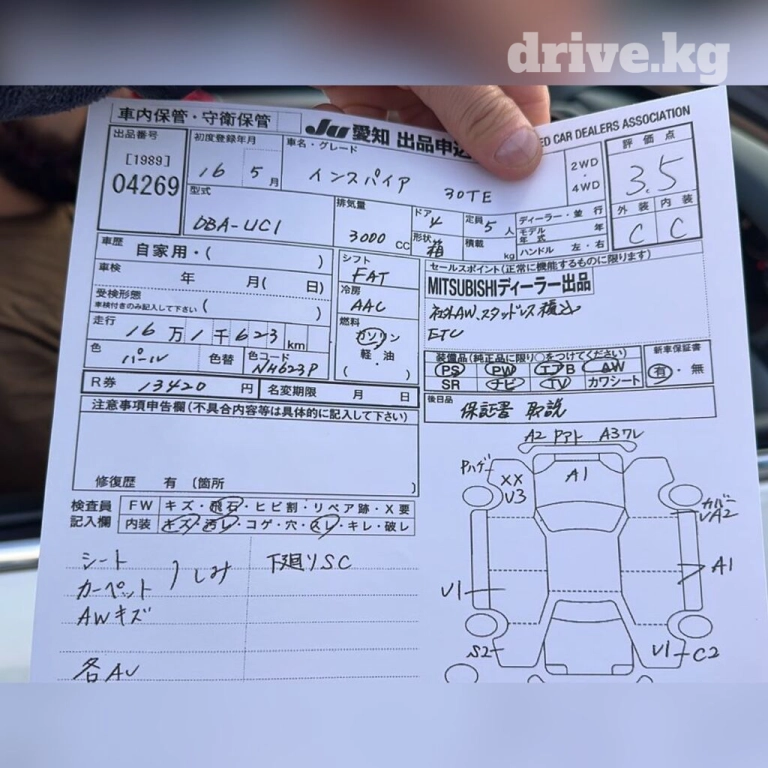 drive.kg
車内保管・守衛保管
JU 愛知 出品申込 ED CAR DEALERS ASSOCIATION
出品番号 初度登録年月 車名・グレード 2WD・4WD 評価点
[1989] 04269 16 5月 インスパイア 30TE 3.5
型式 排気量 ドア 4 定員 5人 ディーラー・並行 外装 内装
DBA-UC1 3000 CC 形状 箱 積載 kg モデル年式 年 C C
ハンドル 左・右
車歴 自家用・( ) シフト FAT セールスポイント(正常に機能するものに限ります)
車検 年 月( 日) 冷房 AAC MITSUBISHIディーラー出品
受検形態 車検付きのみ記入して下さい ( ) 社外AW、スタッドレス積込
走行 16万1千623km 燃料 ガソリン ETC
軽・油
( )
色 パール 色替 色コード NH623P 装備品(純正品に限り○をつけてください) 新車保証書
PS PW エアB AW 有・無
SR ナビ TV カワシート
R券 13420 円 名変期限 月 日 後日品 保証書 取説
注意事項申告欄(不具合内容等は具体的に記入して下さい)
修復歴 有 (箇所 )
検査員記入欄 FW キズ・飛石・ヒビ割・リペア跡・X要
内装 キズ・汚レ・コゲ・穴・スレ・キレ・破レ
シート
カーペット シミ
AWキズ
各AU
下廻りSC
A2 A3ワレ
Pハゲ XX U3 A1 カバー
A2
A1
U1
S2 U1 C2